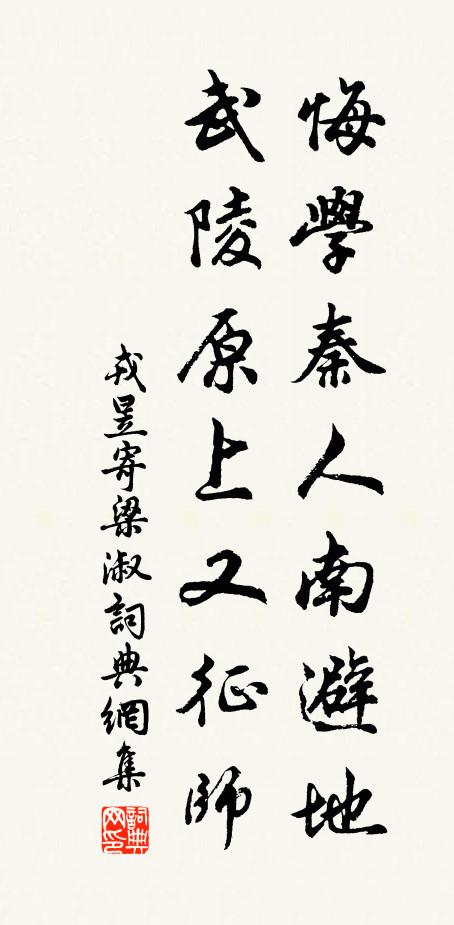 悔學秦人南避地
武陵原上又征師
戎昱寄梁淑詞典網集
詞典网印